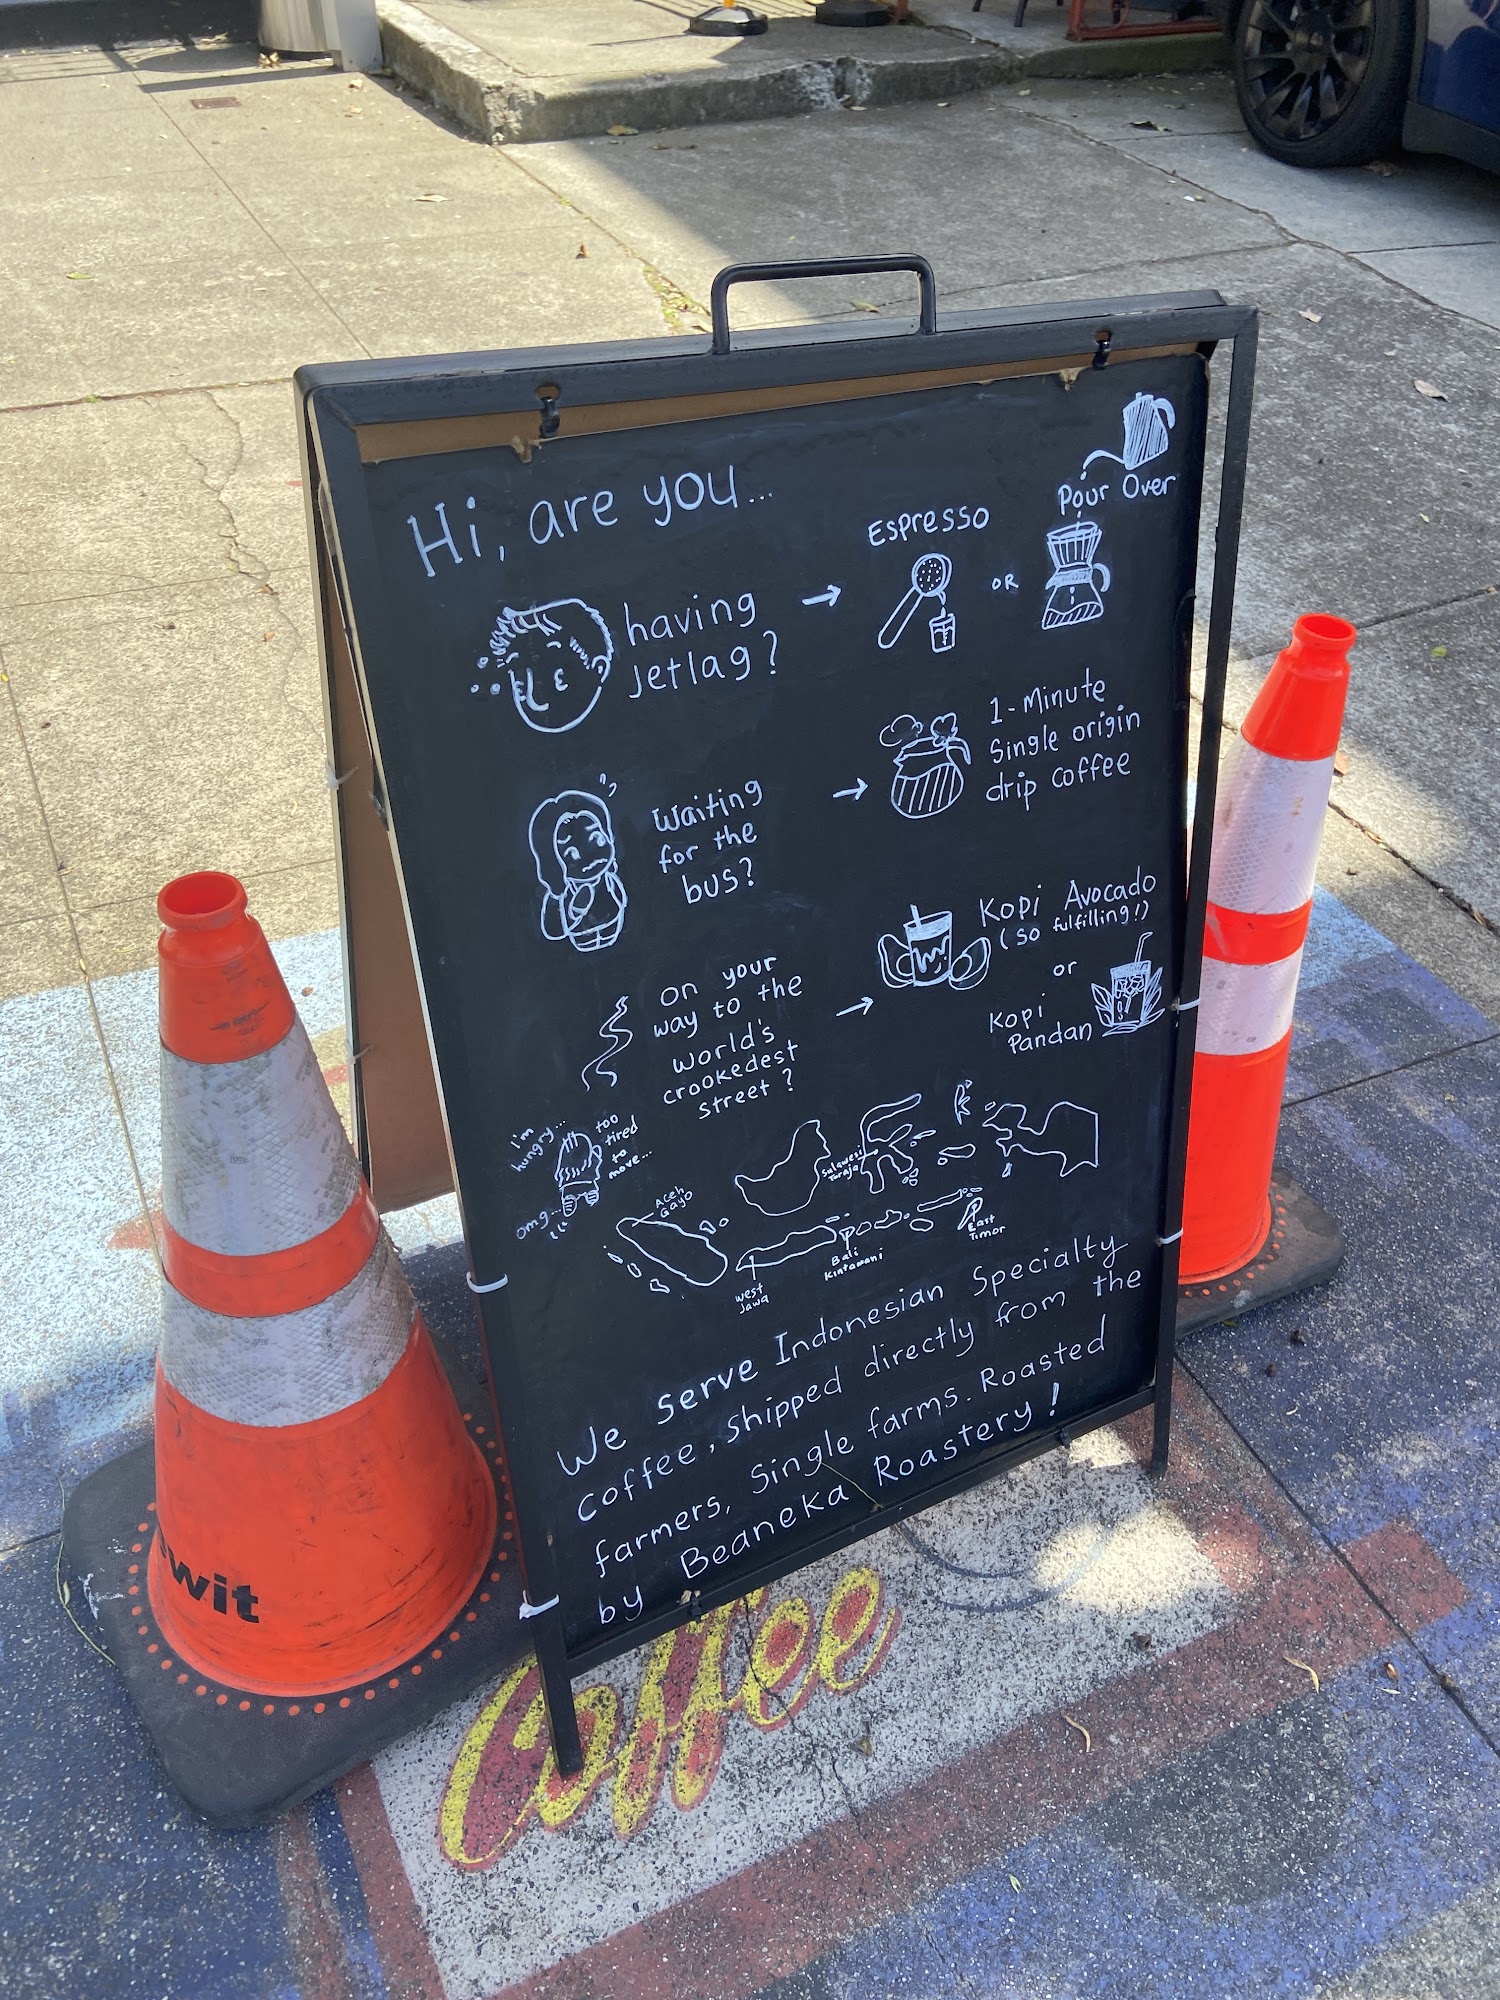 Hi, are you...
having
Jetlag?
Espresso
OR
Pour Over
Waiting
for the
bus?
1-Minute
Single origin
drip coffee
on your
way to the
world's
crookedest
street?
Kopi Avocado
(so fulfilling!)
or
Kopi
Pandan
I'm
hungry...
too
tired
to
move...
omg...
Aceh
Gayo
Sulawesi
Toraja
West
Jawa
Bali
Kintamani
East
Timor
We serve Indonesian Specialty
coffee, shipped directly from the
farmers, single farms. Roasted
by Beaneka Roastery!
wit
Coffee